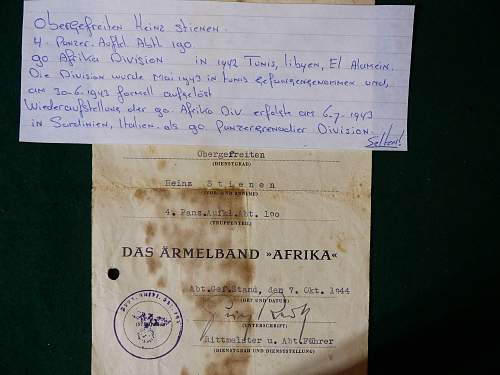 Obergefreiten Heinz Stienen
4. Panzer. Aufkl Abtl 190.
90 Afrika Division in 1942 Tunis, Libyen, El Alamein.
Die Division wurde Mai 1943 in Tunis gefangengenommen und,
am 30-6-1943 formell aufgelöst
Wiederaufstellung der 90. Afrika Div erfolgte am 6-7-1943
in Sardinien, Italien. als 90 Panzergrenadier Division.
Selten!
Obergefreiten
(DIENSTGRAD)
Heinz Stienen
(VOR- UND ZUNAME)
4. Panz.Aufkl.Abt. 190
(TRUPPENTEIL)
DAS ÄRMELBAND »AFRIKA«
Abt.Gef.Stand, den 7. Okt. 1944
(ORT UND DATUM)
(UNTERSCHRIFT)
Rittmeister u. Abt.Führer
(DIENSTGRAD UND DIENSTSTELLUNG)